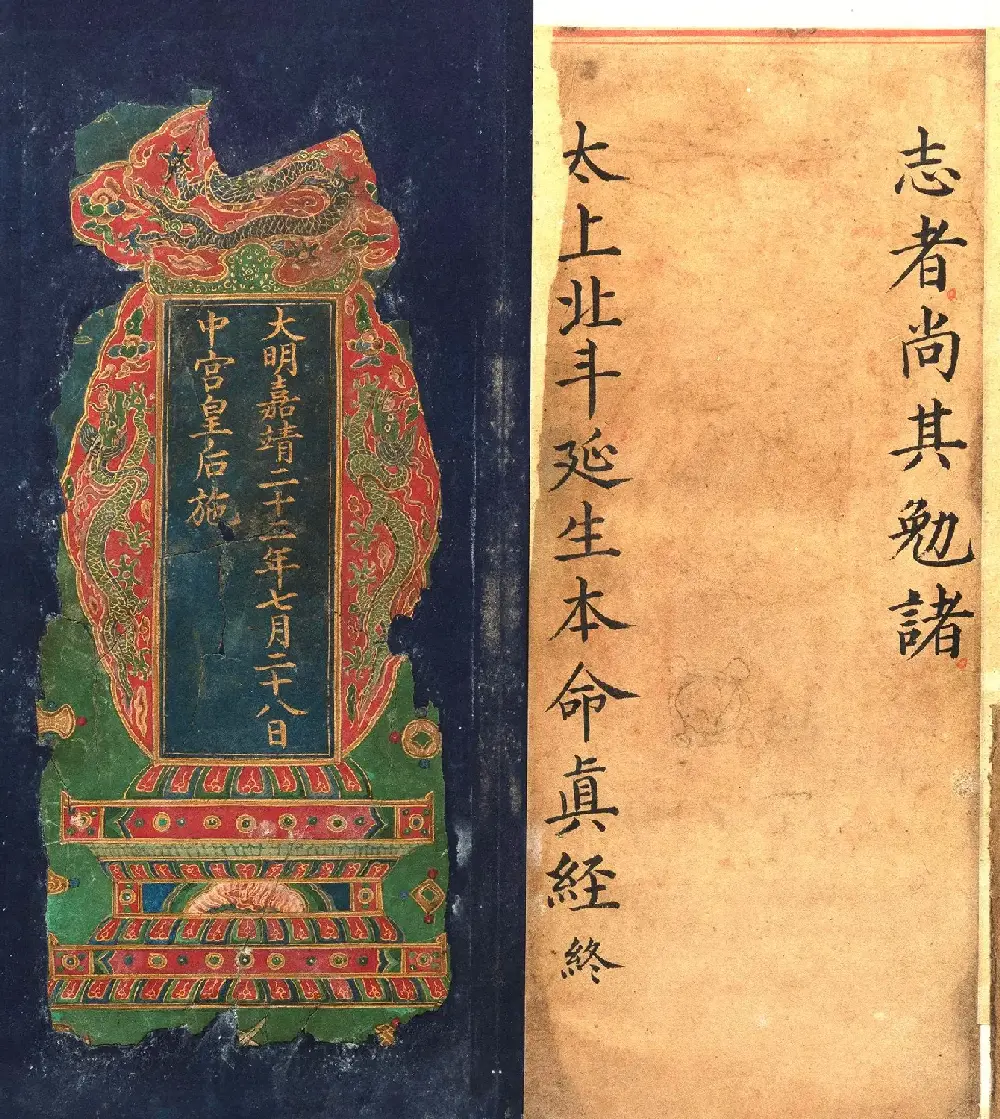 志者尚其勉諸
太上北斗延生本命眞経終
大明嘉靖二十二年七月二十八日
中宮皇后施